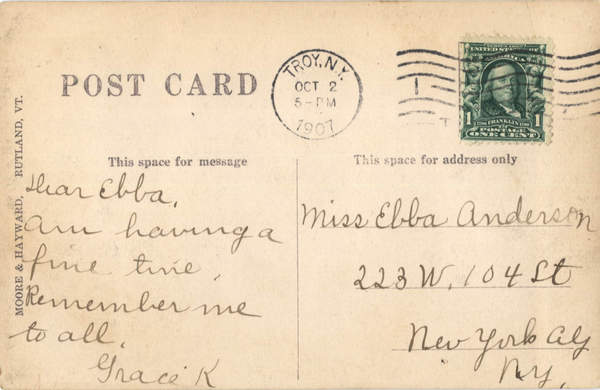 POST CARD
TROY, N.Y.
OCT 2
5-PM
1907
UNITED STATES OF AMERICA
1 FRANKLIN 1
POSTAGE
ONE CENT
MOORE & HAYWARD, RUTLAND, VT.
This space for message
Dear Ebba,
Am having a
fine time,
Remember me
to all,
Grace K
This space for address only
Miss Ebba Anderson
223 W. 104 St
New York City
N.Y.